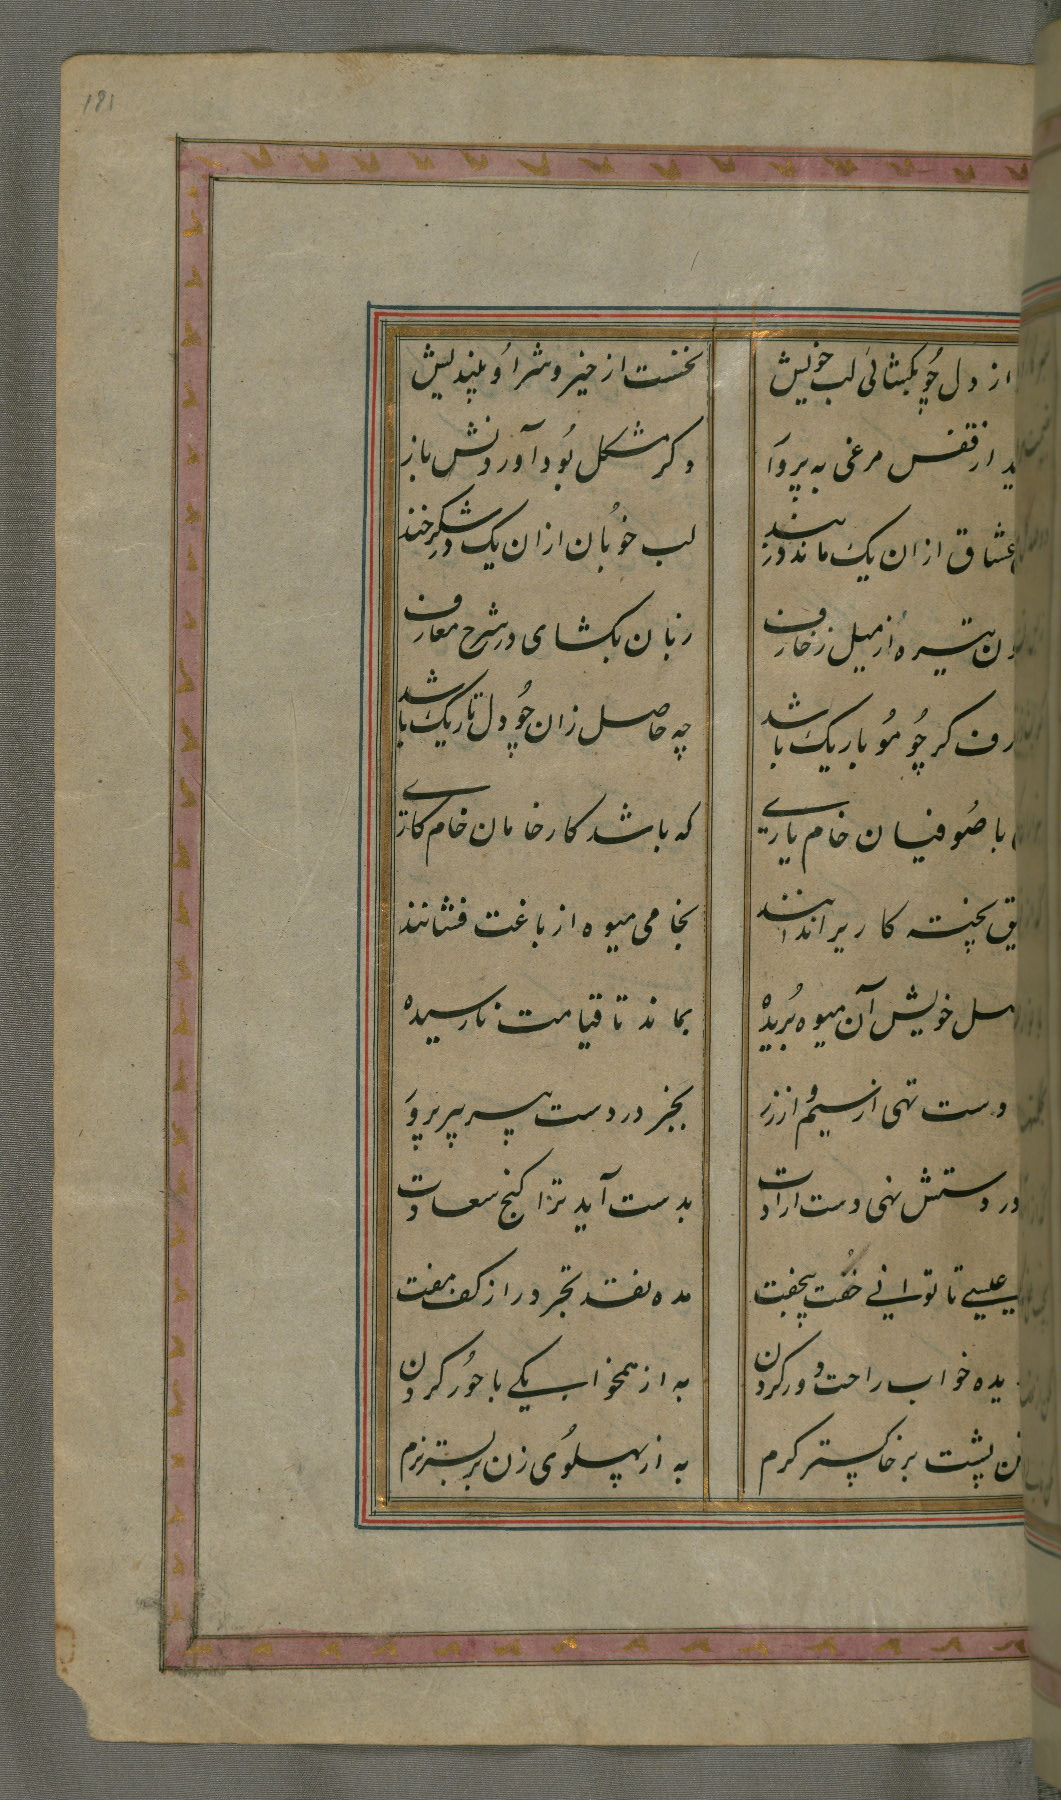 181
از دل چو بکشائی لب خویش نخست از خیر و شر او بیندیش
از قفس مرغی به پرواز وگر مشکل بود آوردنش باز
عشاق ازان یک ماند دربند لب خوبان ازان یک در شکرخند
تیره از میل زخارف زبان بکشای در شرح معارف
گر چو مو باریک باشد چه حاصل زان چو دل تاریک باشد
با صوفیان خام یاری که باشد کار خامان خام کاری
پخته کاری را ندانند بخامی میوه از باغت فشانند
خویش آن میوه بریده بماند تا قیامت نارسیده
دست تهی از سیم و از زر بجز در دست پیر پیرپرور
در دستش نهی دست ارادت بدست آید ترا گنج سعادت
عیسی تا توانی خفت بی جفت مده نقد تجرد از کف مفت
خواب راحت دور کردن به از همخوابیکی با حور کردن
پشت بر خاکستر گرم به از پهلوی زن بر بستر نرم